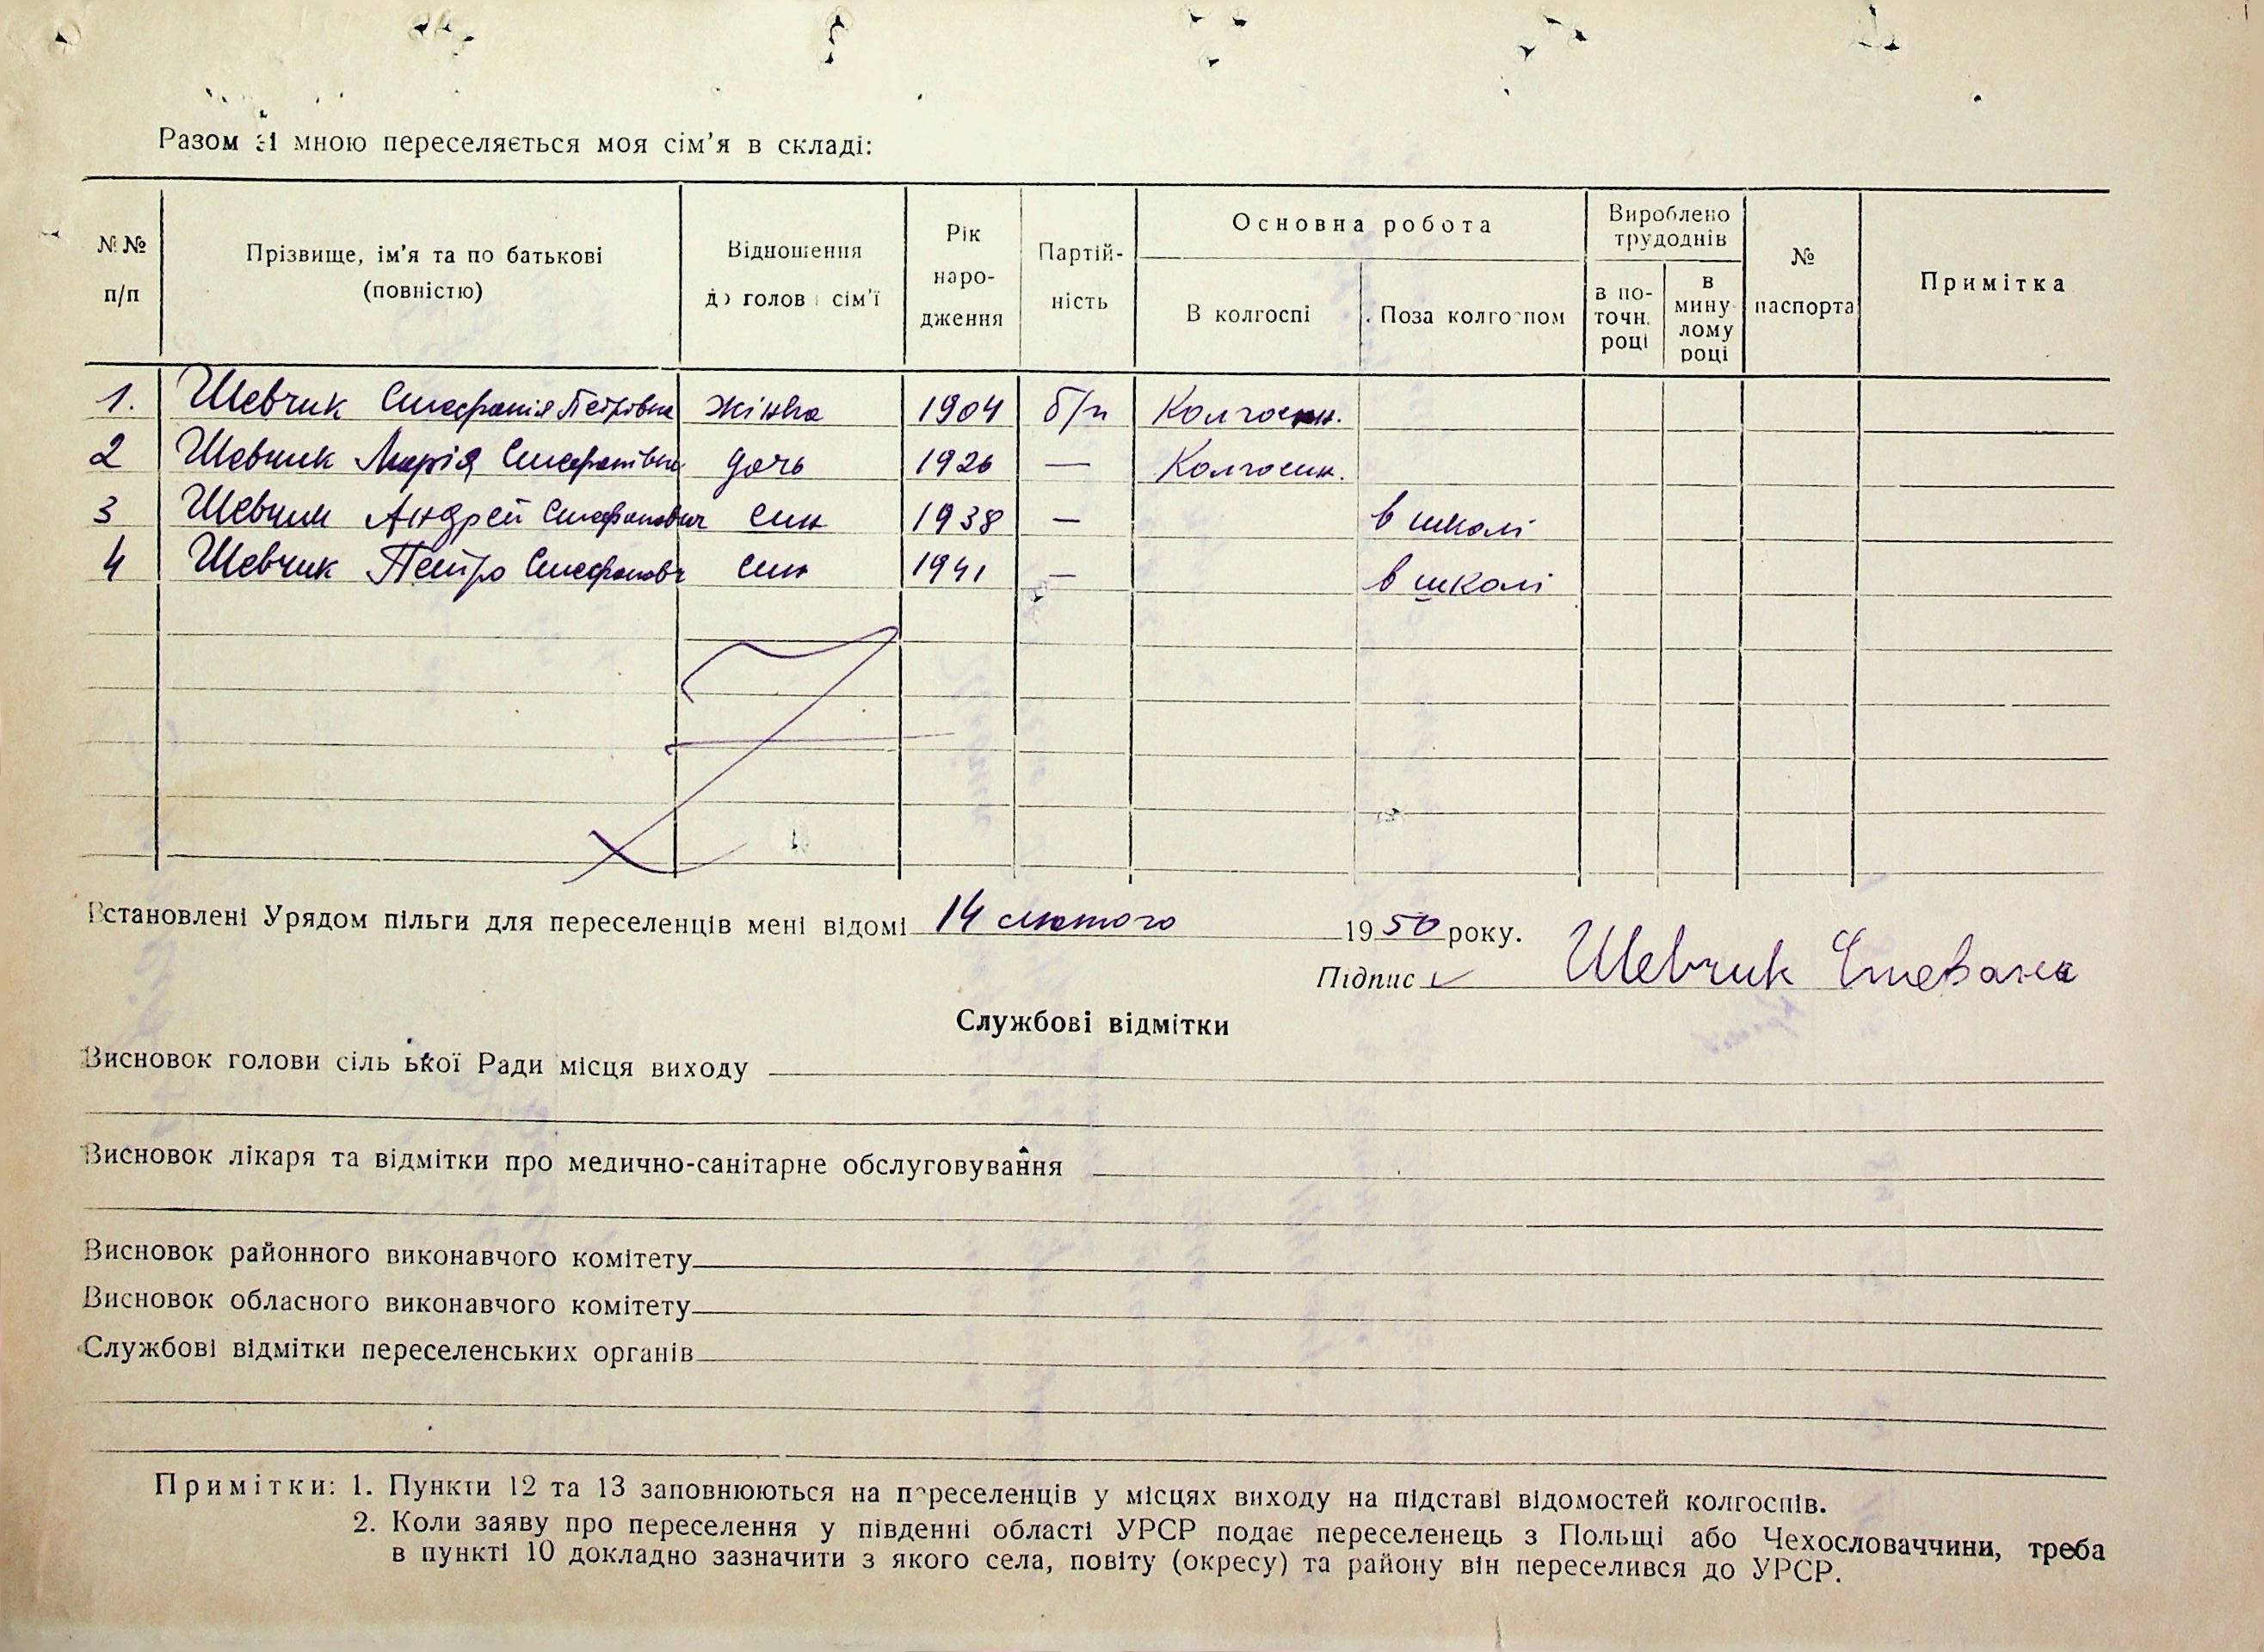 Разом зі мною переселяється моя сім'я в складі:
№№ п/п
Прізвище, ім'я та по батькові (повністю)
Відношення до голови сім'ї
Рік народження
Партійність
Основна робота
В колгоспі
Поза колгоспом
Вироблено трудоднів
в поточн. році
в минулому році
№ паспорта
Примітка
1. Шевчик Стефанія Петрівна жінка 1904 б/п Колгоспн.
2 Шевчик Марія Стефанівна дочь 1926 — Колгоспн.
3 Шевчик Андрей Стефанович син 1938 — в школі
4 Шевчик Петро Стефанович син 1941 — в школі
Встановлені Урядом пільги для переселенців мені відомі 14 лютого 1950 року.
Підпис Шевчик Стевана
Службові відмітки
Висновок голови сільської Ради місця виходу
Висновок лікаря та відмітки про медично-санітарне обслуговування
Висновок районного виконавчого комітету
Висновок обласного виконавчого комітету
Службові відмітки переселенських органів
Примітки: 1. Пункти 12 та 13 заповнюються на переселенців у місцях виходу на підставі відомостей колгоспів.
2. Коли заяву про переселення у південні області УРСР подає переселенець з Польщі або Чехословаччини, треба
в пункті 10 докладно зазначити з якого села, повіту (окресу) та району він переселився до УРСР.